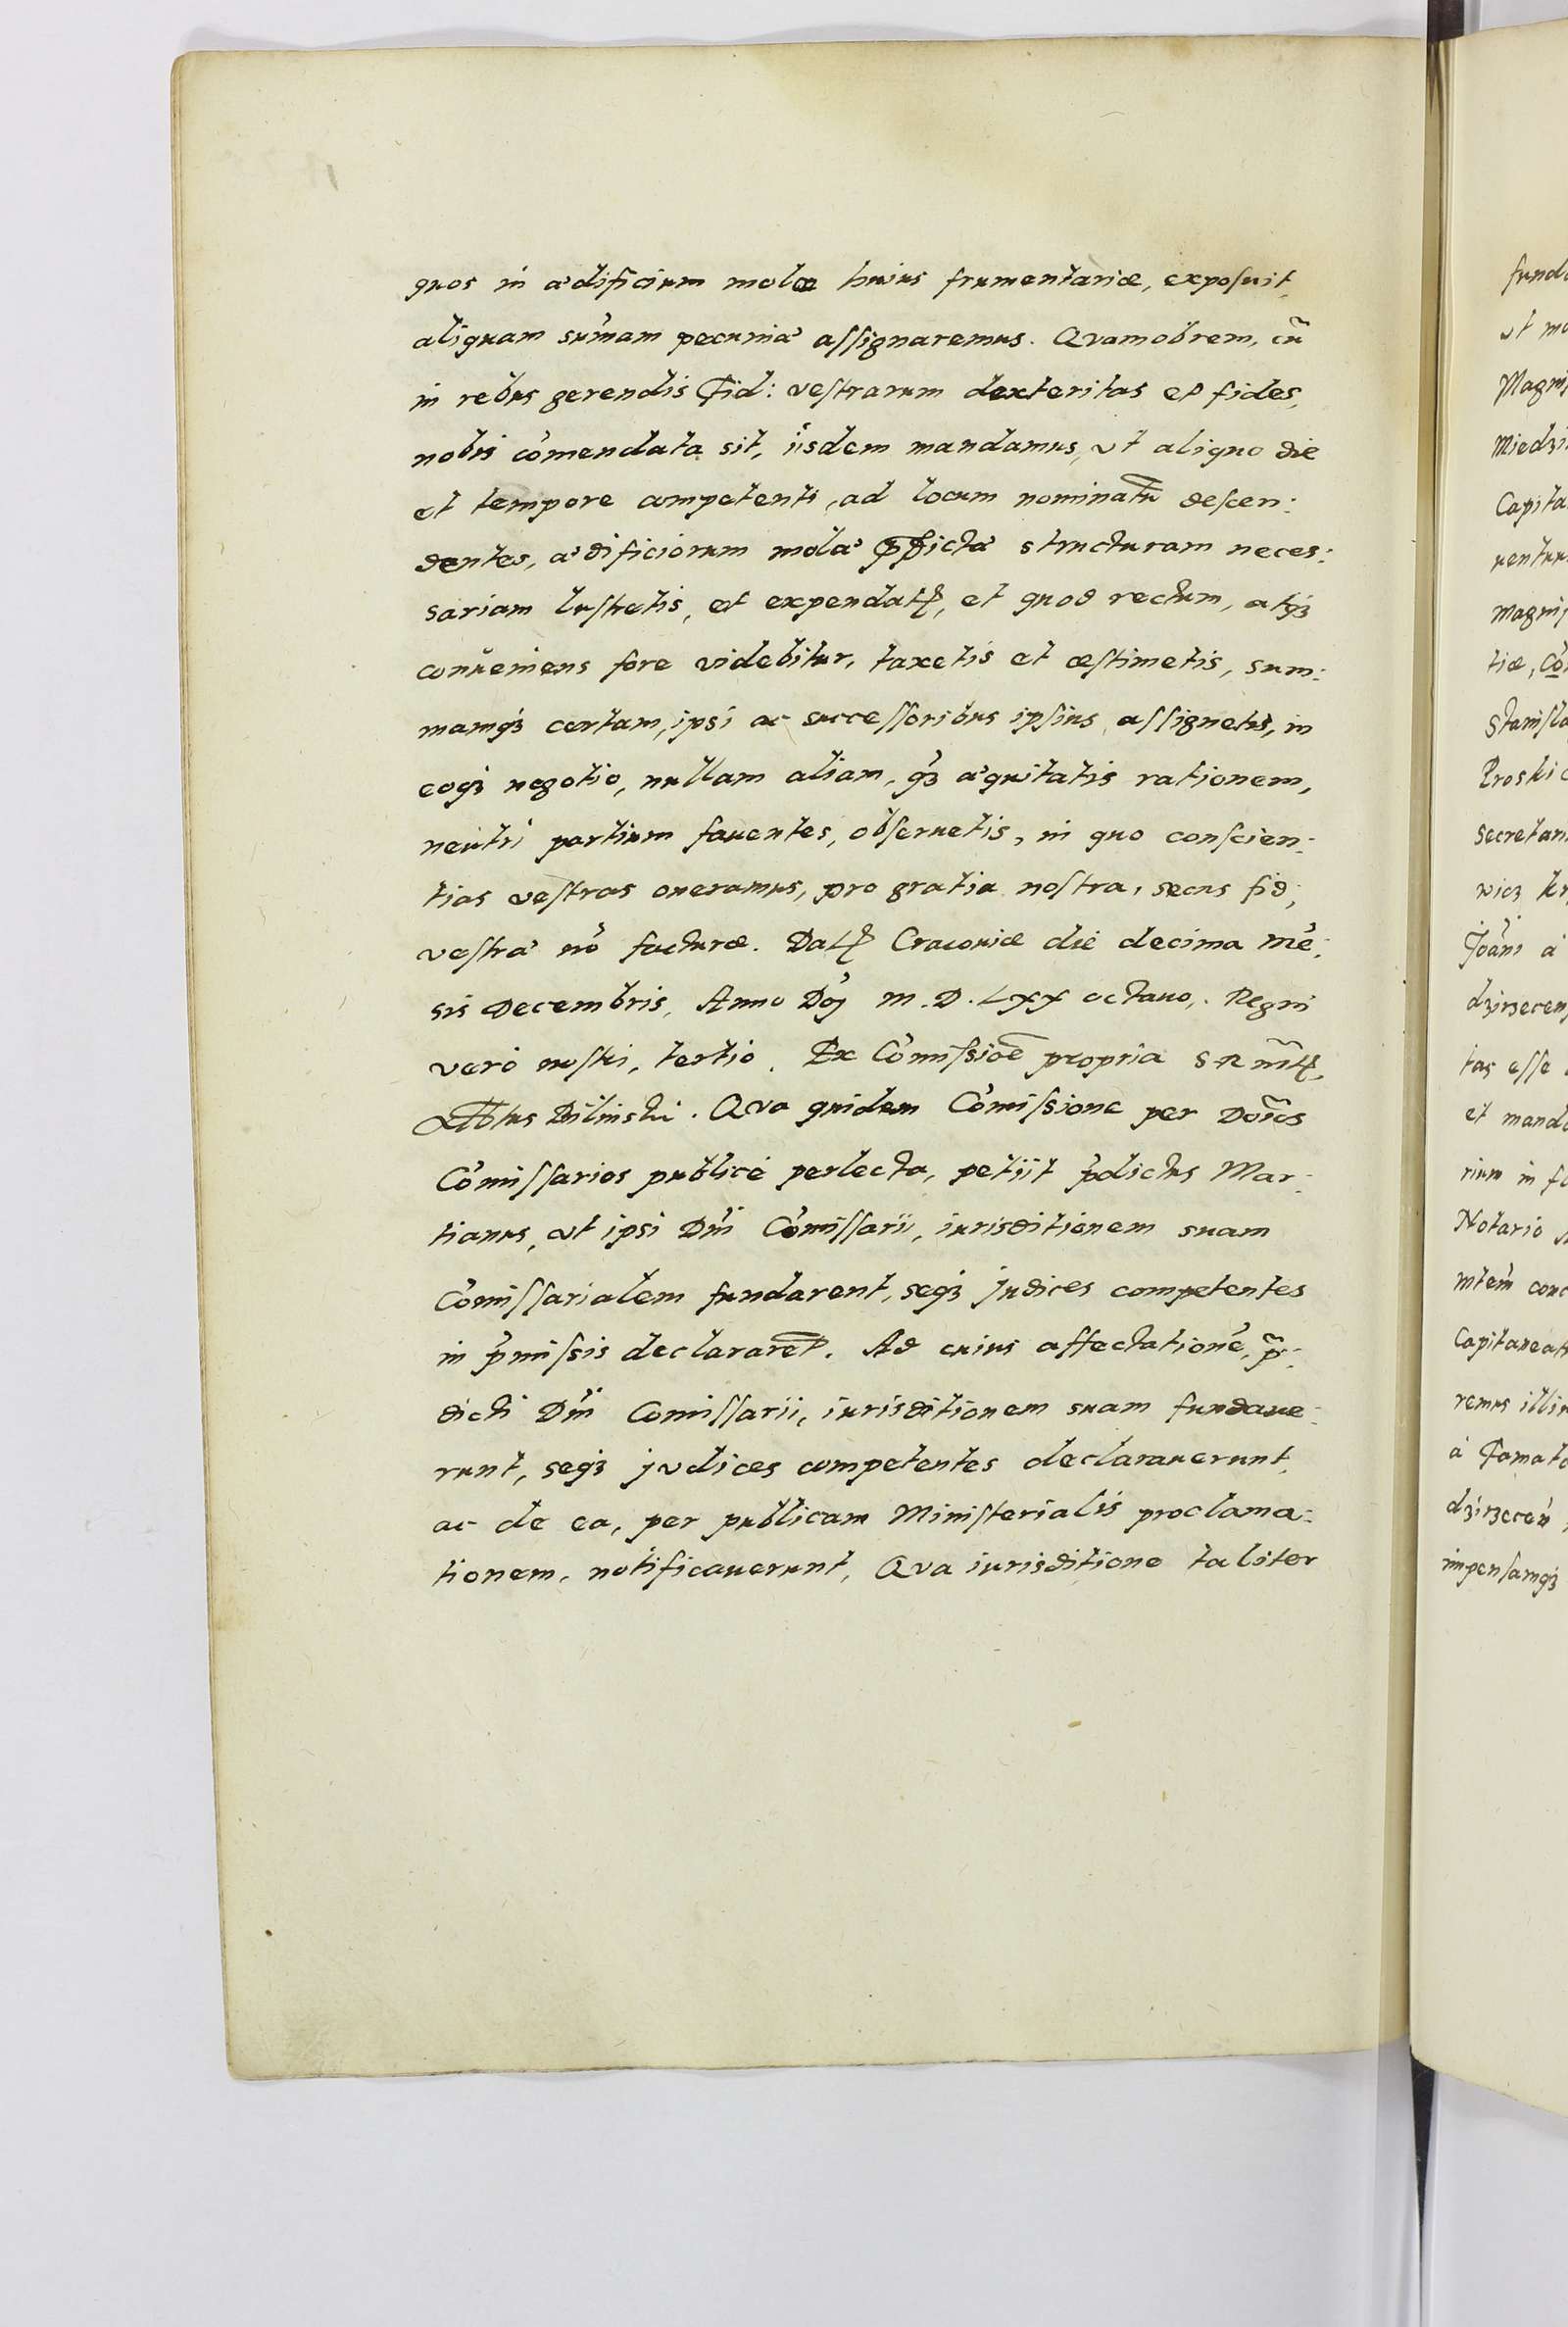 quos in ædificium molæ huius frumentariæ, exposuit,
aliquam sum̄am pecuniæ assignaremus. Quamobrem, cū
in rebus gerendis Fid: vestrarum dexteritas et fides,
nobis com̄endata sit, iisdem mandamus, vt aliquo die
et tempore competenti, ad locum nominatū descen:
dentes, ædificiorum molæ p̄dictæ structuram neces:
sariam lustretis, et expendatꝭ, et quod rectum, atqꝫ
conueniens fore videbitur, taxetis et æstimetis, sum:
mamqꝫ certam, ipsi ac successoribus ipsius assignetis, in
eoqꝫ negotio, nullam aliam, qꝫ æquitatis rationem,
neutri partium fauentes, obseruetis, in quo conscien:
tias vestras oneramus, pro gratia nostra, secus fid:
vestræ nō facturæ. Datꝭ Cracouiæ die decima mē:
sis Decembris, Anno Dnj M.D.LXX octauo, Regni
vero nostri, tertio. Ex Com̄issiōe propria S R mtꝭ,
Bilinski. Qua quidem Com̄issione per Doīos
Com̄issarios publicè perlecta, petiit p̄dictus Mar:
tianus, vt ipsi Dn̄i Com̄issarii, iurisditionem suam
Com̄issarialem fundarent, seqꝫ judices competentes
in p̄missis declararet. Ad cuius affectationē, p̄:
dicti Dn̄i Com̄issarii, iurisditionem suam fundaue:
runt, seqꝫ jvdices competentes declarauerunt,
ac de ea, per publicam Ministerialis proclama:
tionem, notificauerunt, Qua iurisditione taliter
fund
vt m
Magni
Miedzi
Capita
uentur
magnif
tiæ, Co
Stanisla
Proski
secretari
wicz
Joāni à
dzirzecen
tas esse
et mand
rium in f
Notario
conc
Capitaneat
remus illi
à Famat
dzirzecen
impensamqꝫ